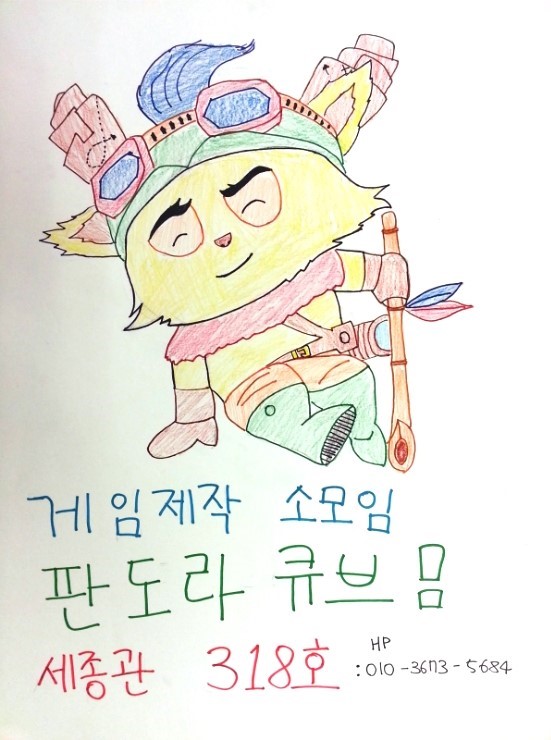 게임제작 소모임
판도라 큐브 몸
세종관 318호
HP
:010-3673-5684